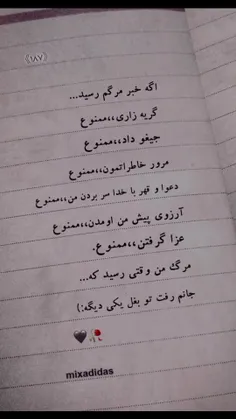 《١٨٧》
اگه خبر مرگم رسید...
گریه زاری،،ممنوع
جیغو داد،،ممنوع
مرور خاطراتمون،،ممنوع
دعوا و قهر با خدا سر بردن من،،ممنوع
آرزوی پیش من اومدن،،ممنوع
عزا گرفتن،،ممنوع.
مرگ من وقتی رسید که...
جانم رفت تو بغل یکی دیگه:)
🥀🖤
mixadidas